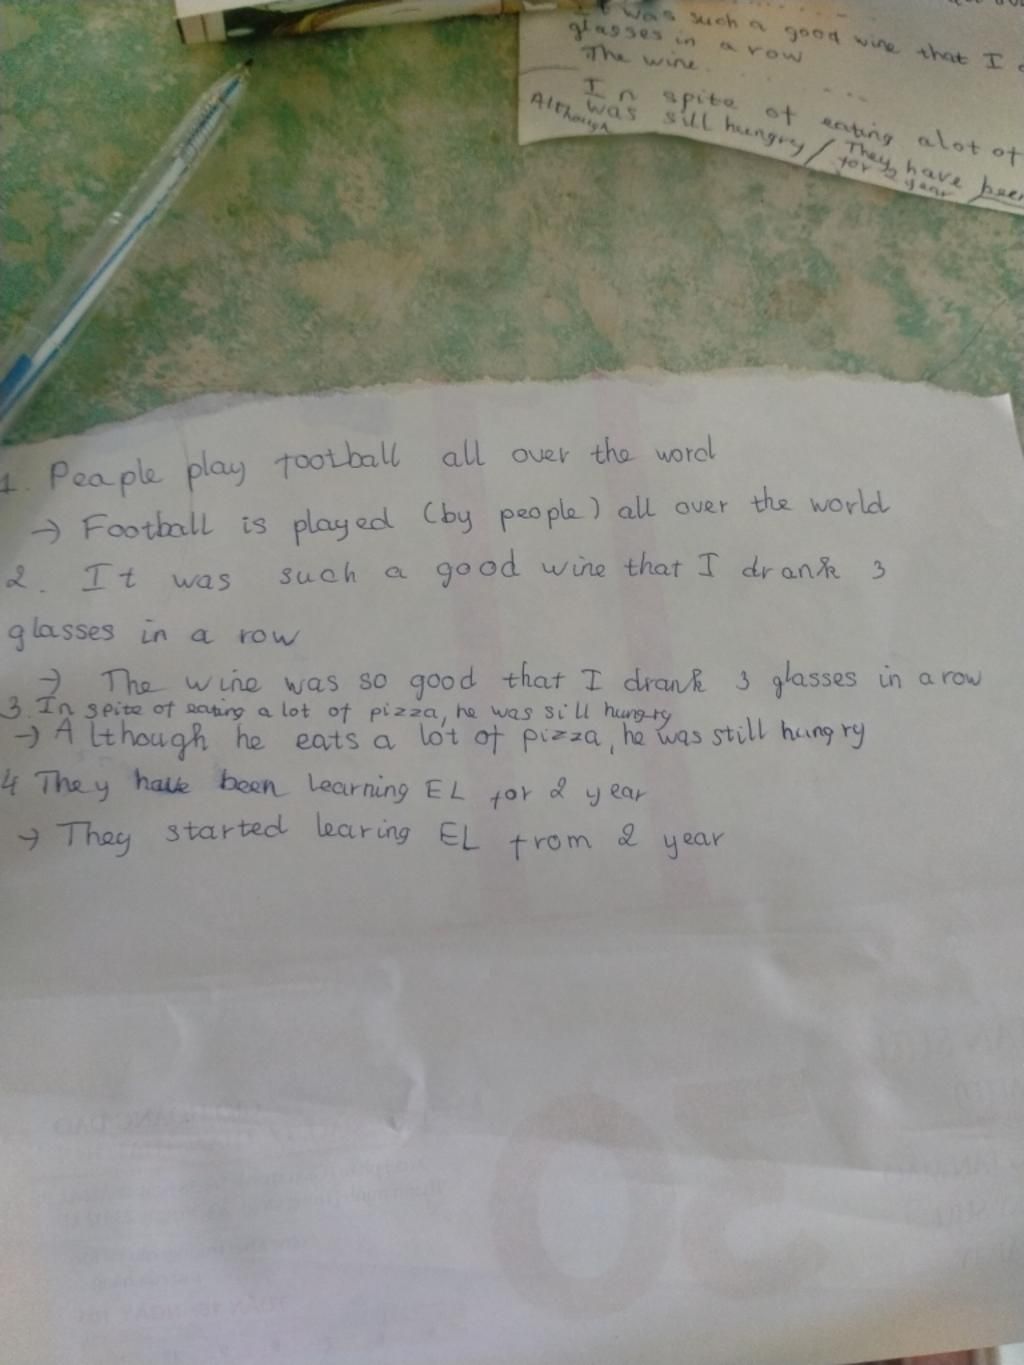 was such a good wine that I
glasses in a row
The wine.....
In spite of eating alot of
Although was sill hungry / They have been
for 2 year
1. Peaple play football all over the word
→ Football is played (by people) all over the world
2. It was such a good wine that I drank 3
glasses in a row
→ The wine was so good that I drank 3 glasses in a row
3. In spite of eating a lot of pizza, he was sill hungry
→ Although he eats a lot of pizza, he was still hungry
4 They have been learning EL for 2 year
→ They started learing EL from 2 year